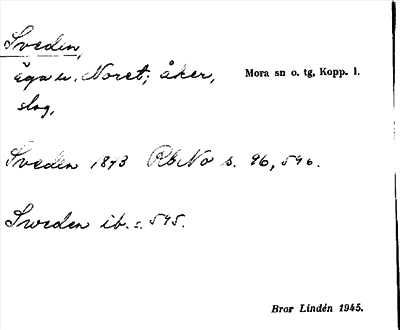 Sveden,
äga u. Noret; åker, Mora sn o. tg, Kopp. l.
slog,
Sveden 1873 RbNo s. 96, 596.
Sweden ib. s. 595.
Bror Lindén 1945.